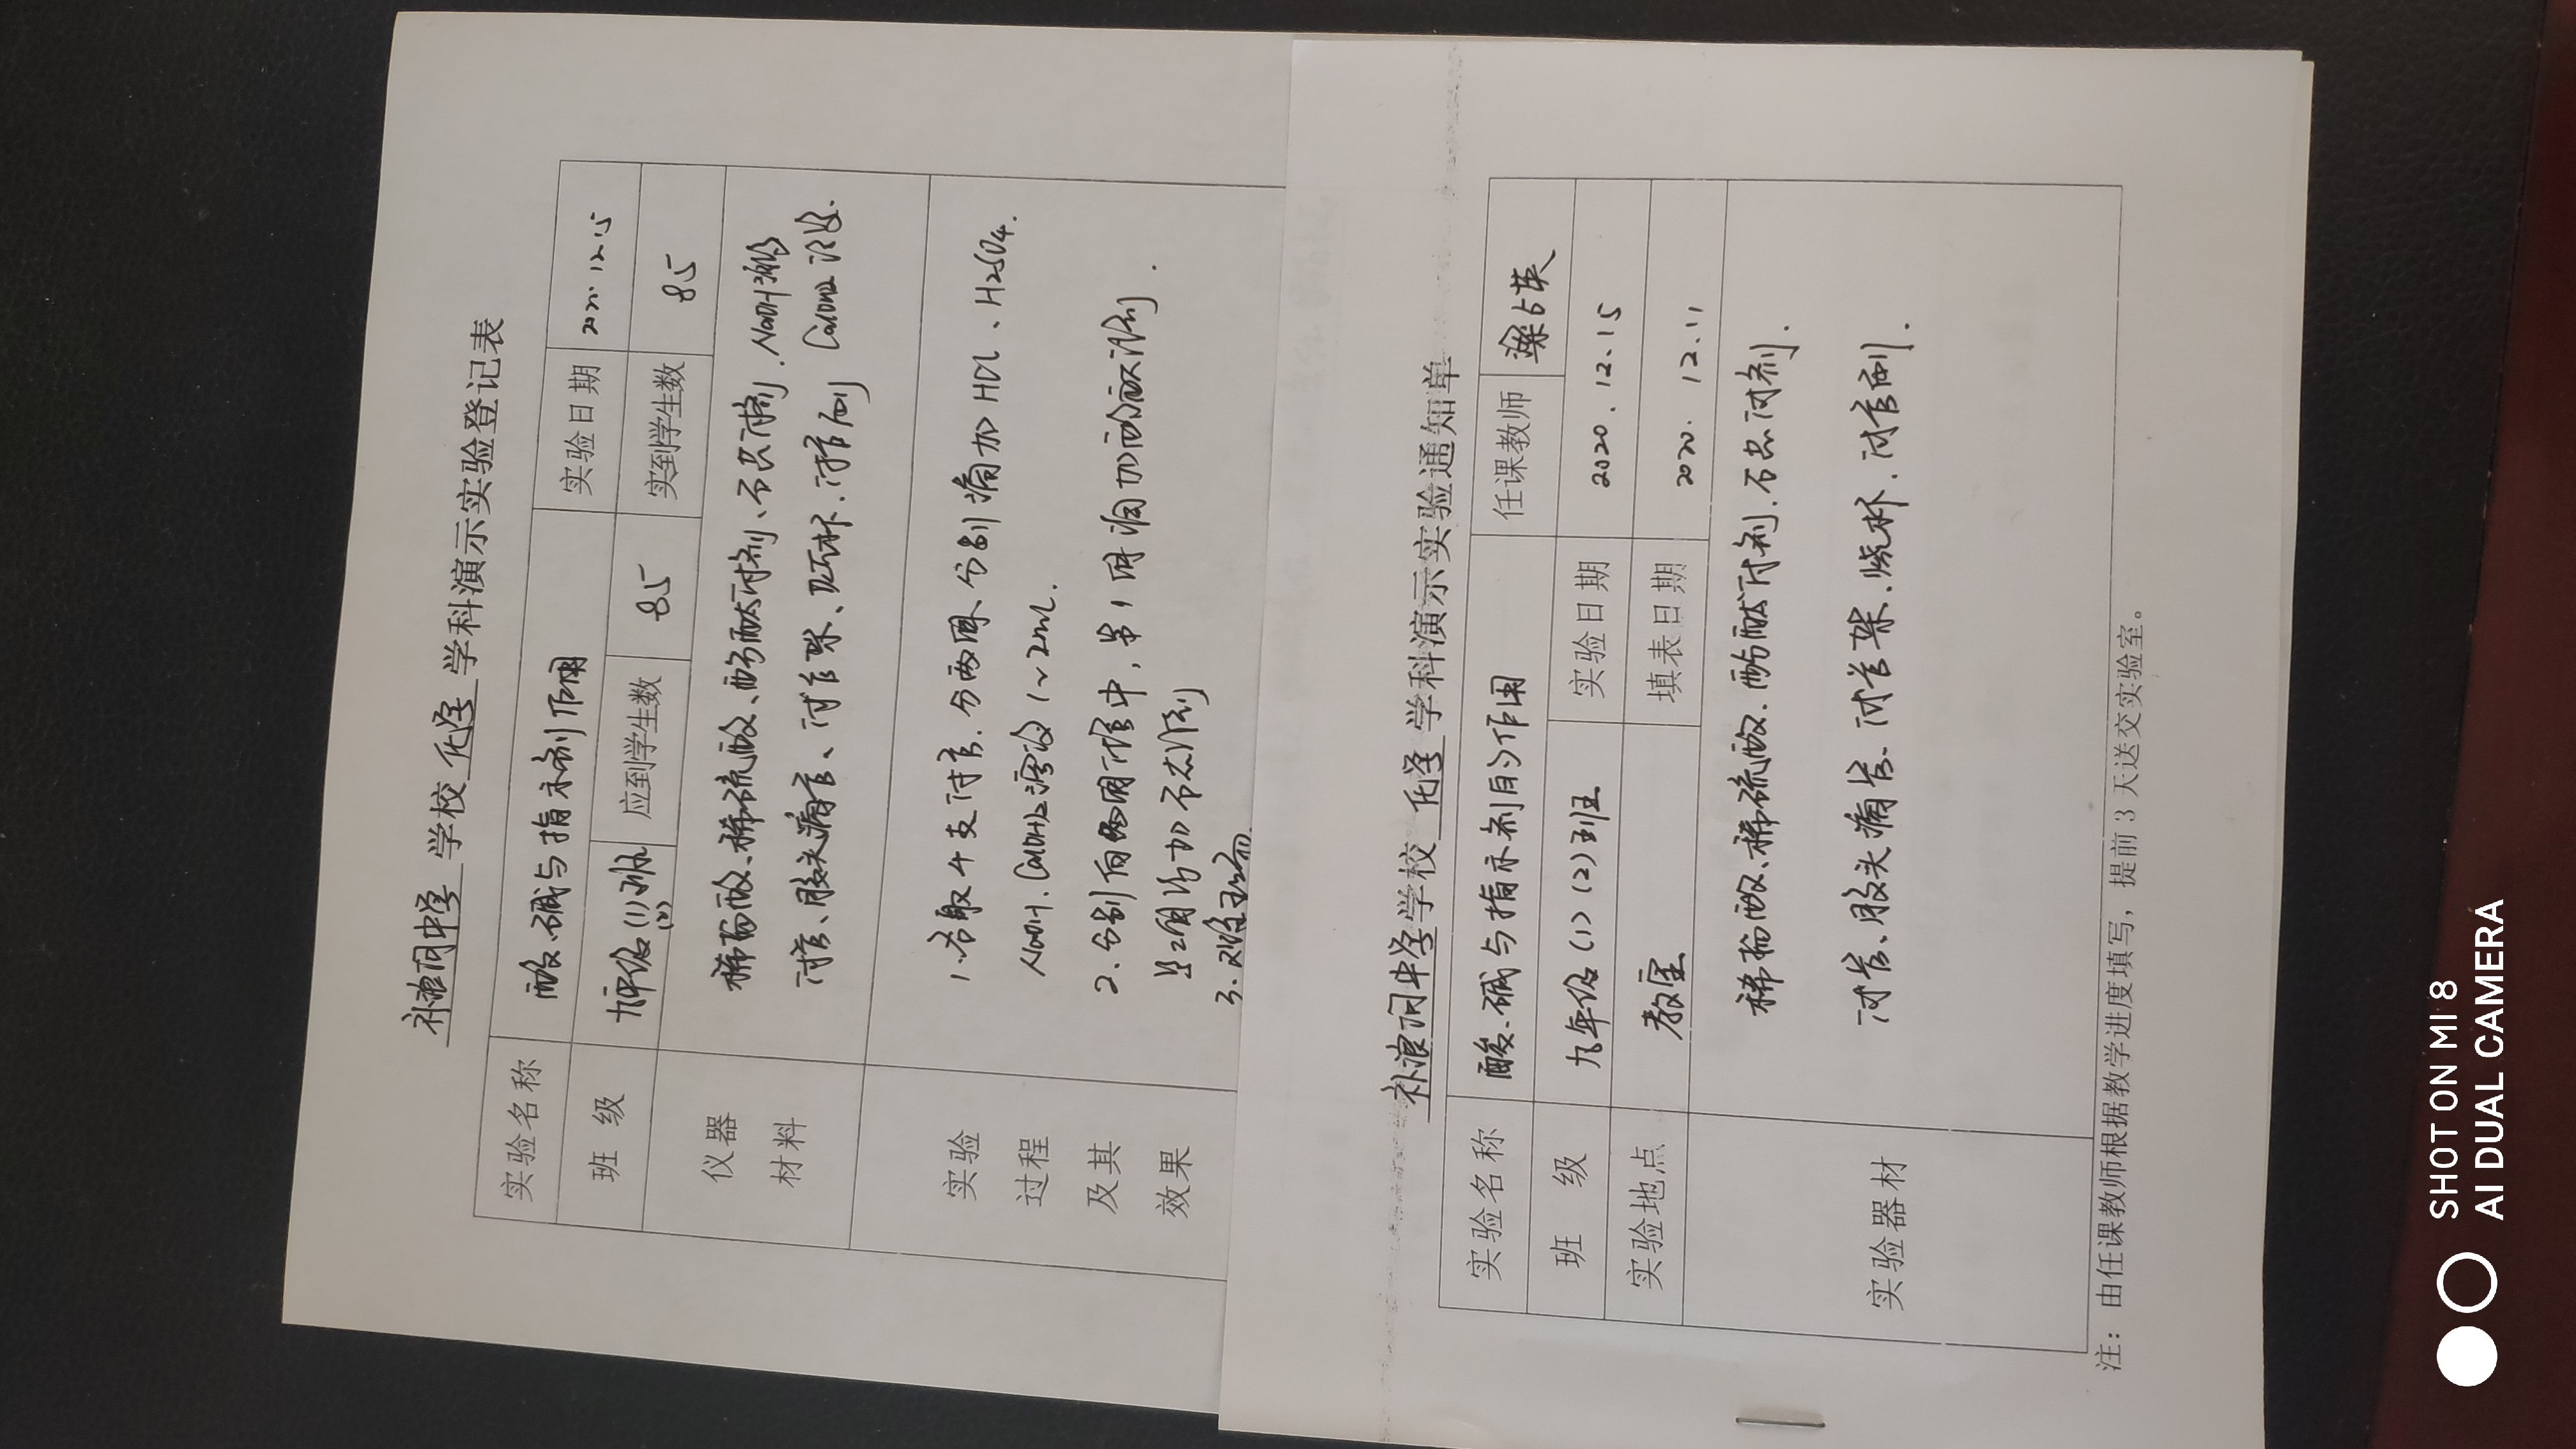 补浪河中学 学校 化学 学科演示实验登记表
实验名称 酸、碱与指示剂作用 实验日期 2020.12.15
班 级 九年级(1)(2)班 应到学生数 85 实到学生数 85
仪器 稀盐酸、稀硫酸、酚酞试剂、石蕊试剂、NaOH溶液
材料 试管、胶头滴管、试管架、烧杯、试管刷 Ca(OH)2溶液.
实验 1.各取4支试管,分两组,分别滴加HCl、H2SO4.
过程 NaOH、Ca(OH)2溶液1~2mL.
及其 2.分别向两组试管中,第1组滴加酚酞试剂
效果 第2组滴加石蕊试剂.
3.观察现象
补浪河中学 学校 化学 学科演示实验通知单
实验名称 酸、碱与指示剂的作用 任课教师 梁占英
班 级 九年级(1)(2)班 实验日期 2020.12.15
实验地点 教室 填表日期 2020.12.11
稀盐酸、稀硫酸、酚酞试剂、石蕊试剂.
实验器材 试管、胶头滴管、试管架、烧杯、试管刷.
注:由任课教师根据教学进度填写,提前3天送交实验室。
SHOT ON MI 8
AI DUAL CAMERA